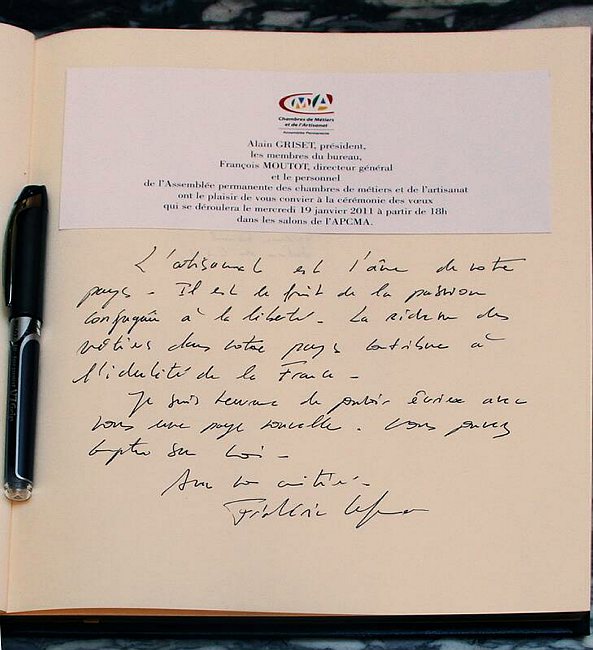 CMA
Chambres de Métiers
et de l'Artisanat
Assemblée Permanente
Alain GRISET, président,
les membres du bureau,
François MOUTOT, directeur général
et le personnel
de l'Assemblée permanente des chambres de métiers et de l'artisanat
ont le plaisir de vous convier à la cérémonie des vœux
qui se déroulera le mercredi 19 janvier 2011 à partir de 18h
dans les salons de l'APCMA.
L'artisanat est l'âme de notre
pays - Il est le fruit de la passion
conjuguée à la liberté - La richesse des
métiers dans notre pays contribue à
l'identité de la France -
Je suis heureux de pouvoir écrire avec
vous une page nouvelle. Vous pouvez
compter sur moi -
Avec mon amitié -
Frédéric Lefebvre